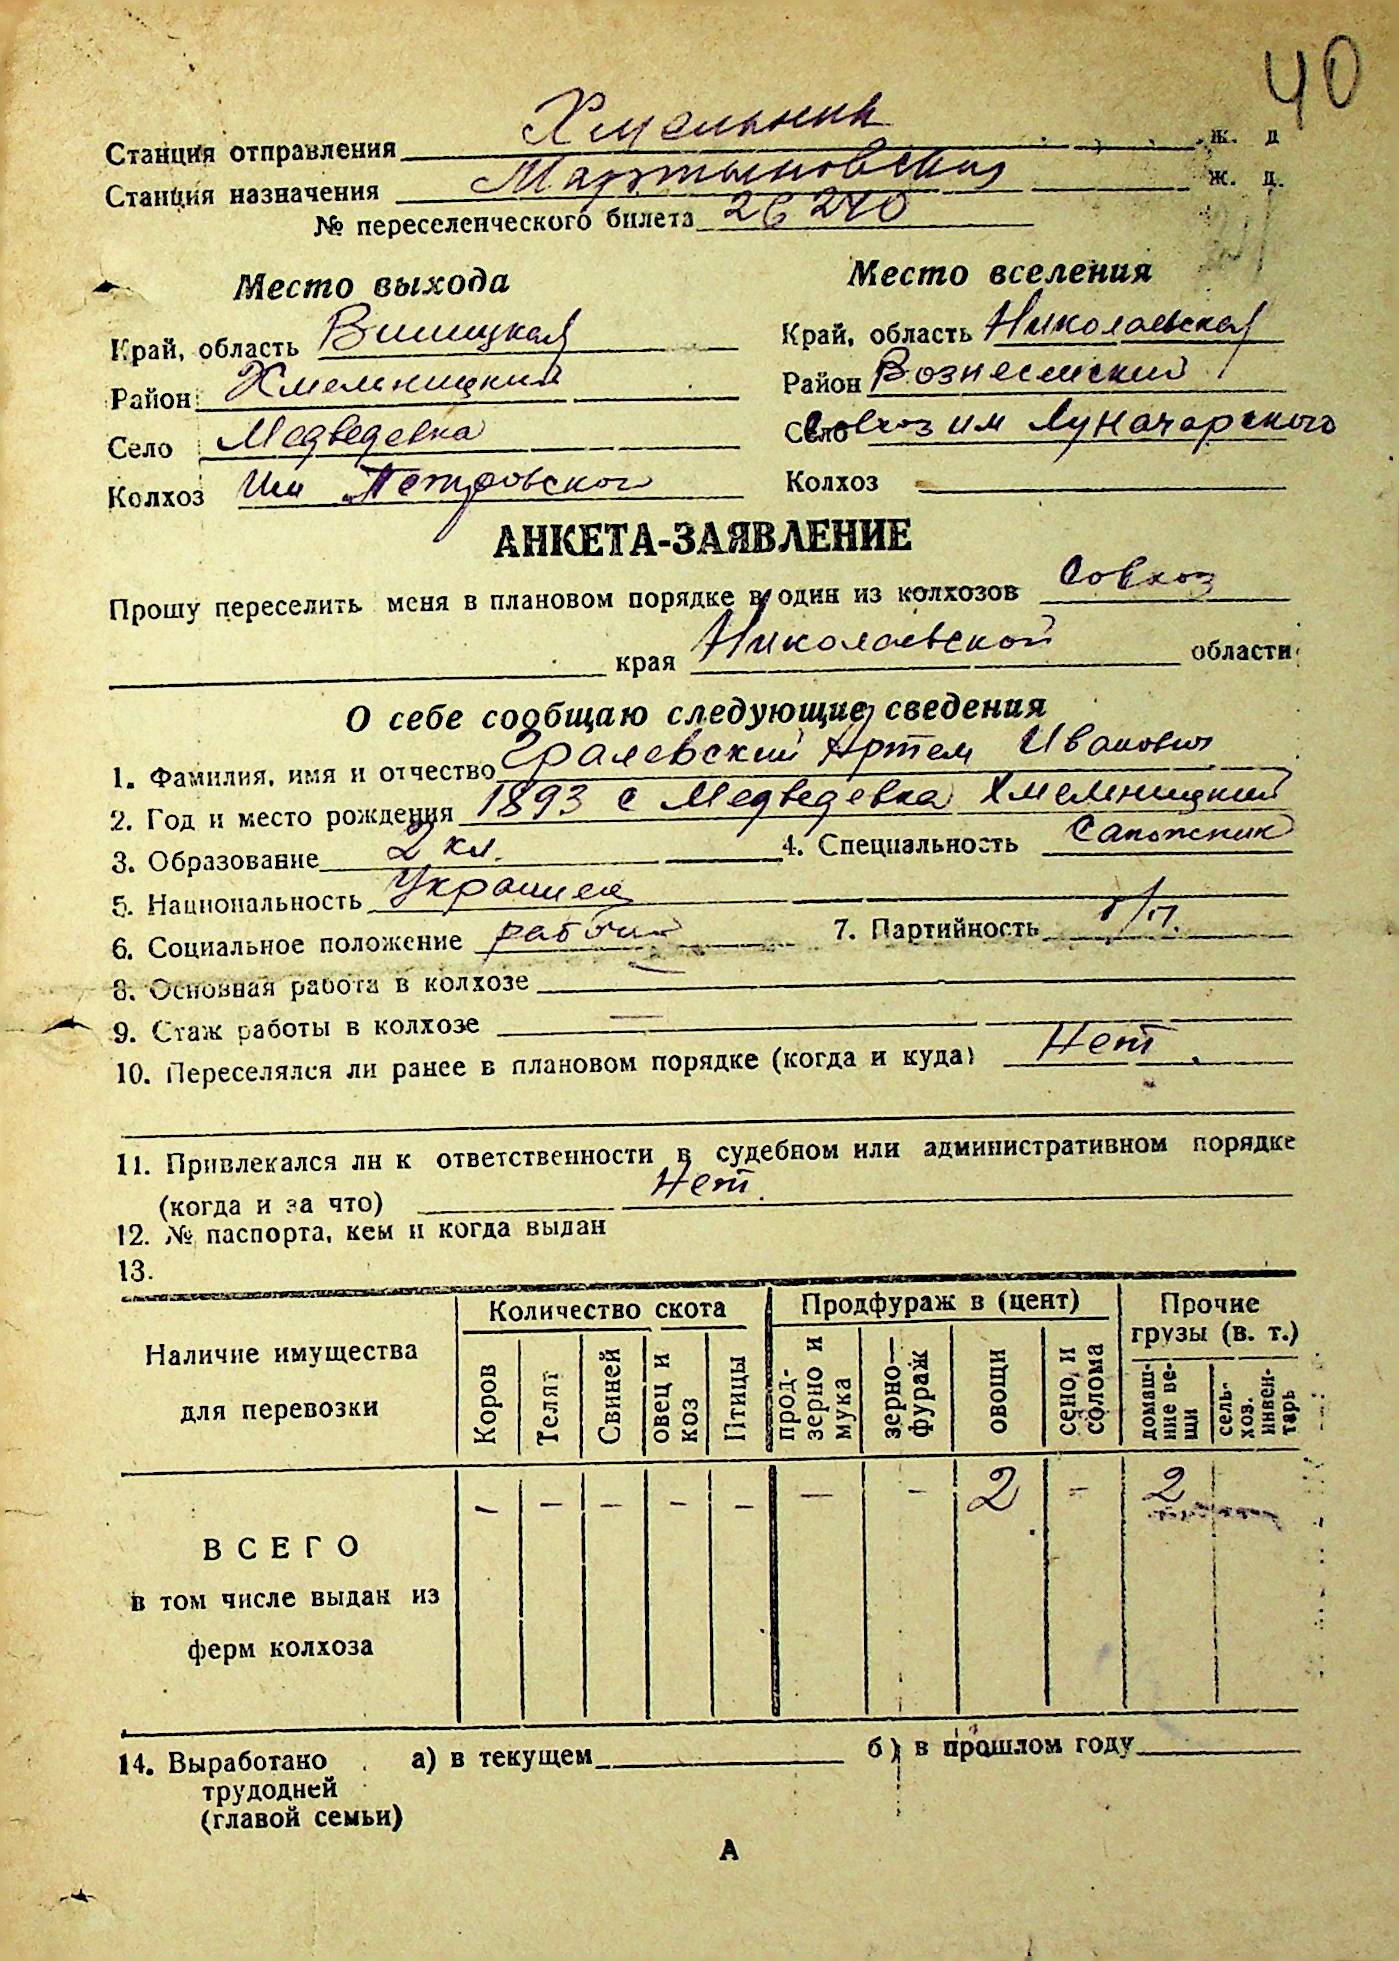 40
Станция отправления Хмельник ж. д
Станция назначения Мартыновская ж. д.
№ переселенческого билета 26240
Место выхода
Край, область Виницкая
Район Хмельницкий
Село Медведевка
Колхоз Им Петровского
Место вселения
Край, область Николаевская
Район Вознесенский
Село Совхоз им Луначарского
Колхоз
АНКЕТА-ЗАЯВЛЕНИЕ
Прошу переселить меня в плановом порядке в один из колхозов совхоз
края Николаевской области
О себе сообщаю следующие сведения
1. Фамилия, имя и отчество Гралевский Артем Иванович
2. Год и место рождения 1893 с Медведевка Хмельницкий
3. Образование 2 кл. 4. Специальность Сапожник
5. Национальность Украинец
6. Социальное положение рабочий 7. Партийность б/п.
8. Основная работа в колхозе —
9. Стаж работы в колхозе —
10. Переселялся ли ранее в плановом порядке (когда и куда) Нет.
11. Привлекался ли к ответственности в судебном или административном порядке
(когда и за что) Нет.
12. № паспорта, кем и когда выдан
13.
Наличие имущества
для перевозки
Количество скота
Коров
Телят
Свиней
овец и
коз
Птицы
Продфураж в (цент)
прод-
зерно и
мука
зерно—
фураж
овощи
сено, и
солома
Прочие
грузы (в. т.)
домаш-
ние ве-
щи
сель-
хоз.
инвен-
тарь
ВСЕГО
в том числе выдан из
ферм колхоза
– – – – – – – 2 – 2
14. Выработано а) в текущем б) в прошлом году
трудодней
(главой семьи)
А